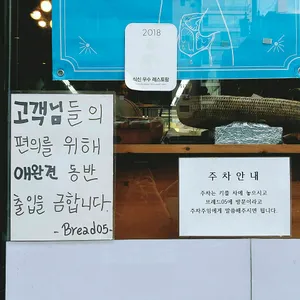 2018
식신 우수 레스토랑
고객님들의
편의를 위해
애완견 동반
출입을 금합니다.
-Bread05-
주차안내
주차는 기름 차에 놓으시고
브레드05에 방문이라고
주차주임에게 말씀해주시면 됩니다.